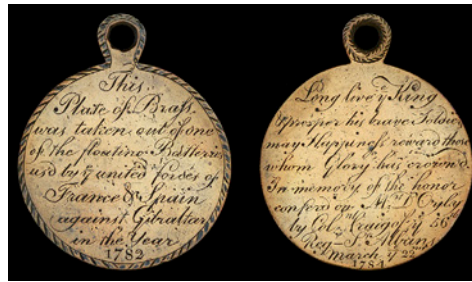 This
Plate of Brass
was taken out of one
of the floating Batteries
usd by ye united forses of
France & Spain
against Gibraltar
in the Year
1782
Long live ye King
& prosper his brave Soldiers
may Happiness reward those
whom Glory has crown'd
In memory of the honor
confer'd on Mr
by Col. ye 56th
Reg - St Albans
march ye 22nd
1784